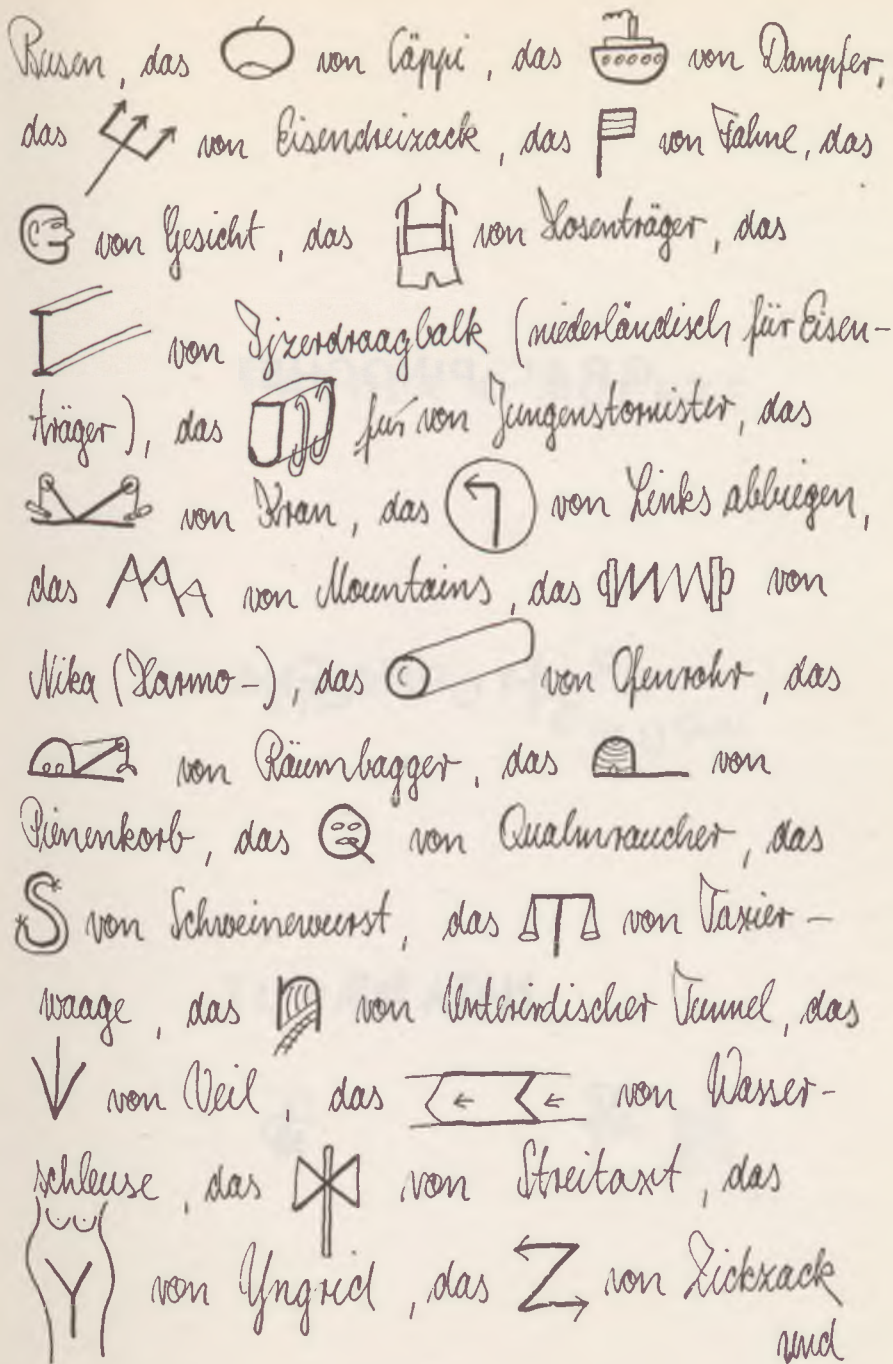 Busen, das von Cäppi, das von Dampfer,
das von Eisendreizack, das von Fahne, das
von Gesicht, das von Hosenträger, das
von Ijzerdraagbalk (niederländisch für Eisen-
träger), das für von Jungenstornister, das
von Kran, das von Links abbiegen,
das von Mountains, das von
Nika (Harmo-), das von Ofenrohr, das
von Räumbagger, das von
Pienenkorb, das von Qualmraucher, das
S von Schweinewurst, das von Taxier-
waage, das von Unterirdischer Tunnel, das
von Veil, das von Wasser-
schleuse, das von Streitaxt, das
von Yngrid, das Z von Zickzack
und